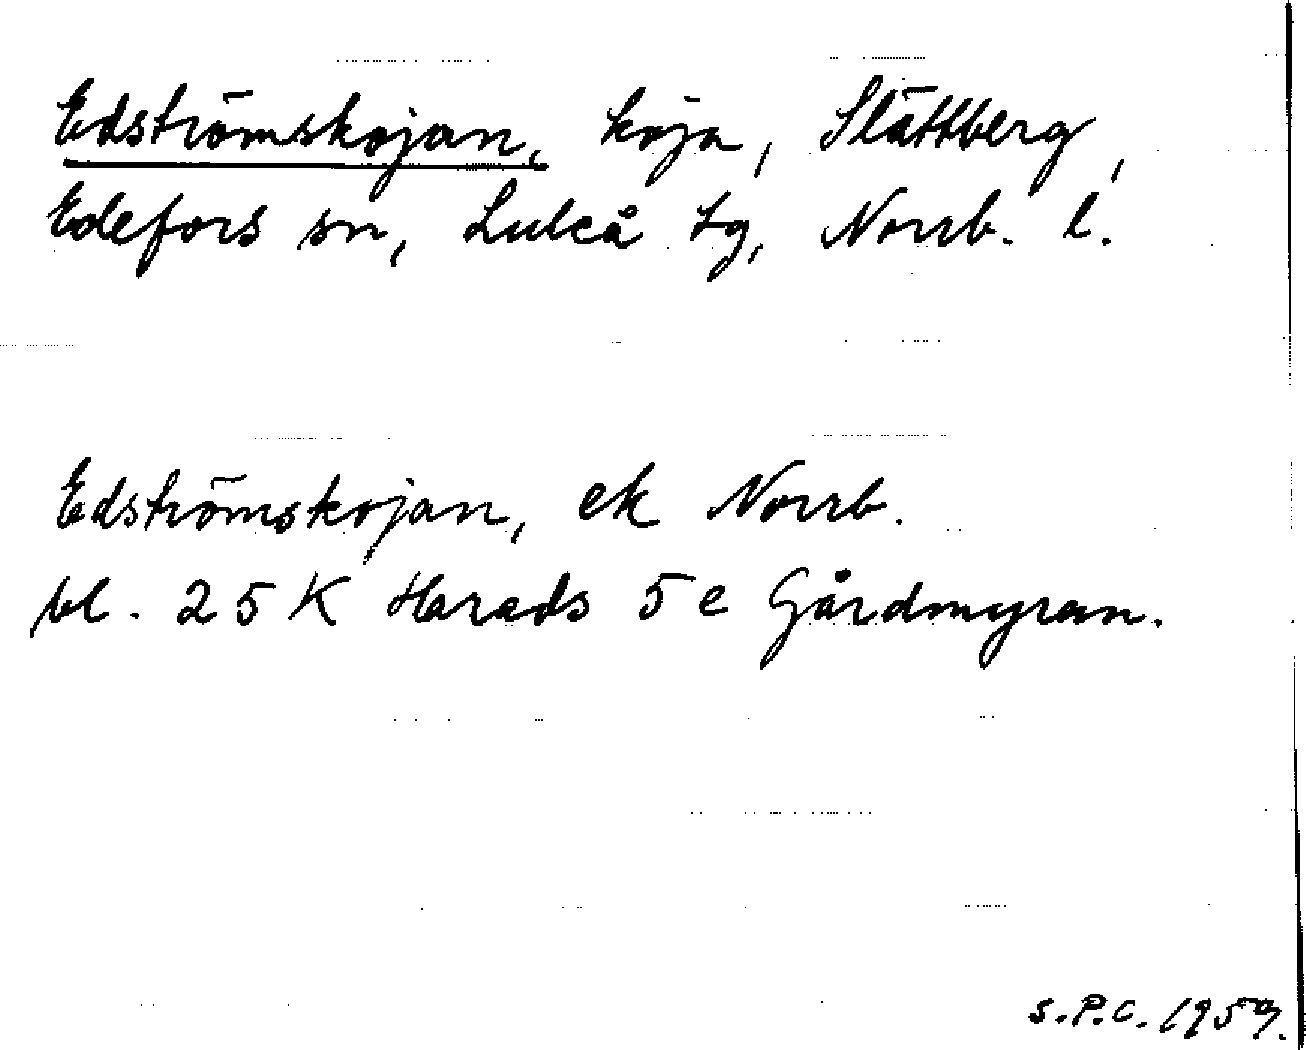 Edströmskojan, koja, Slättberg,
Edefors sn, Luleå tg, Norrb. l.
Edströmskojan, ek Norrb.
bl. 25 K Harads 5 e Gårdmyran.
S.P.C. 1959.